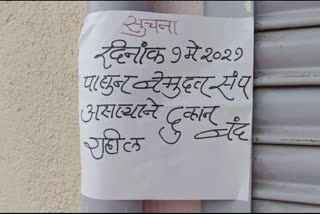 सुचना
दिनांक १ मे २०२१
पासुन बेमुदत संप
असल्याने दुकान बंद
राहील